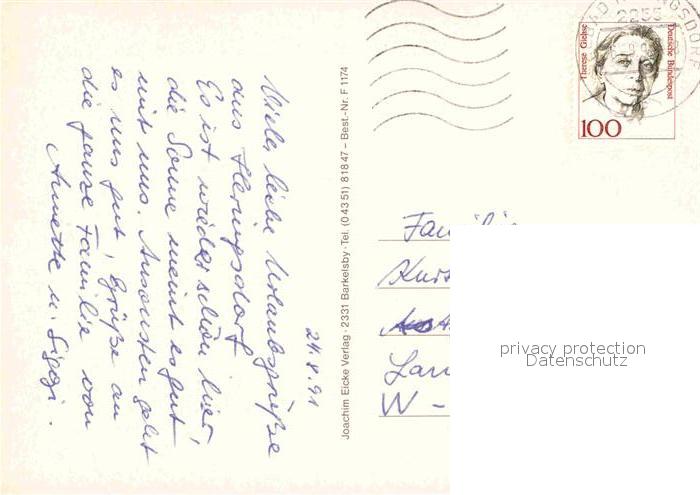 24.8.91
Viele, liebe Urlaubsgrüße
aus Heringsdorf
Es ist wieder schön hier
die Sonne meint es gut
mit uns. Ansonsten geht
es uns gut, Grüße an
die ganze Familie von
Annette u. Siggi.
Joachim Eicke Verlag · 2331 Barkelsby · Tel. (04351) 81847 – Best.-Nr. F 1174
2255
Therese Giehse
Deutsche Bundespost
100
Familie
W -
privacy protection
Datenschutz